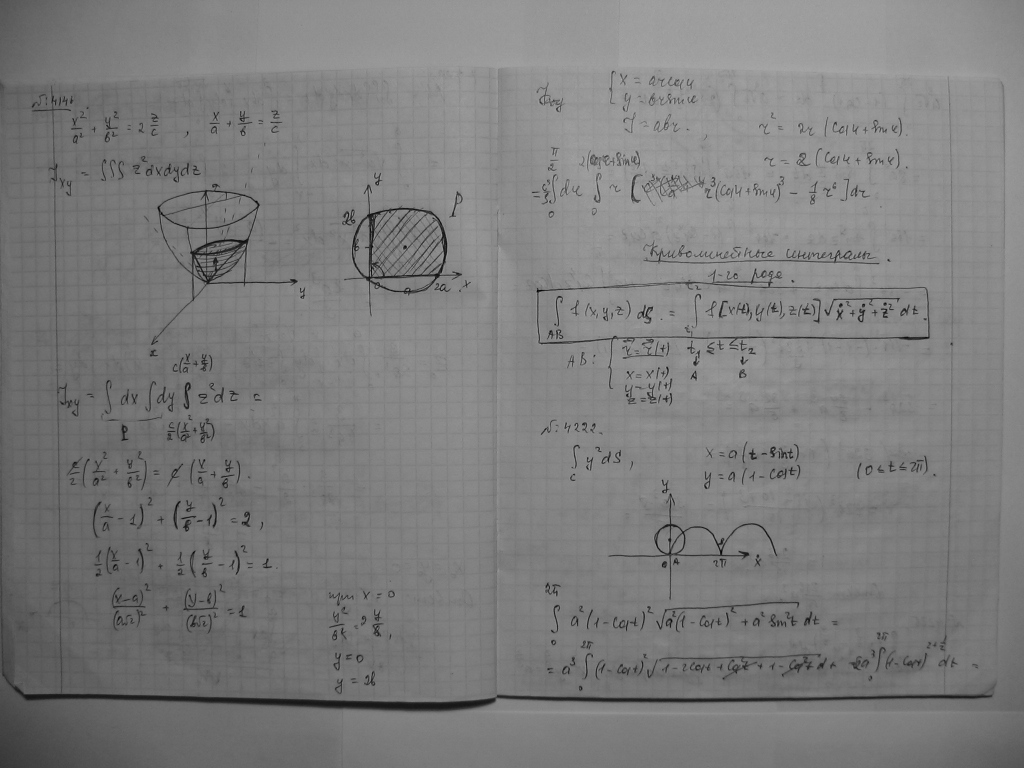 № 4146.
x²/a² + y²/b² = 2 z/c , x/a + y/b = z/c
I_xy = ∫∫∫ z² dx dy dz
z
y
x
y
2b
b
0
a
2a
x
P
c(x/a + y/b)
I_xy = ∫ dx ∫ dy ∫ z² dz =
P
c/2 (x²/a² + y²/b²)
c/2 (x²/a² + y²/b²) = c (x/a + y/b).
(x/a - 1)² + (y/b - 1)² = 2,
1/2 (x/a - 1)² + 1/2 (y/b - 1)² = 1.
(x-a)²/(a√2)² + (y-b)²/(b√2)² = 1
при x = 0
y²/b² = 2 y/b,
y = 0
y = 2b
I_xy
{ x = ar cos φ
y = br sin φ
I = abr.
r² = 2r (cos φ + sin φ).
r = 2 (cos φ + sin φ).
π/2
2(cos φ + sin φ)
∫ dφ ∫ r [ r³ (cos φ + sin φ)³ - 1/8 r⁶ ] dr
0
0
Криволинейные интегралы.
1-го рода.
∫ f(x, y, z) dS = ∫ f [x(t), y(t), z(t)] √(ẋ² + ẏ² + ż²) dt.
AB
AB: { r = r(t) t₁ ≤ t ≤ t₂
A B
x = x(t)
y = y(t)
z = z(t)
№ 4222.
∫ y² dS,
C
x = a (t - sin t)
y = a (1 - cos t)
(0 ≤ t ≤ 2π).
y
0
A
2π
x
2π
∫ a² (1 - cos t)² √(a² (1 - cos t)² + a² sin² t) dt =
0
= a³ ∫₀^2π (1 - cos t)² √(1 - 2cos t + cos² t + 1 - cos² t) dt